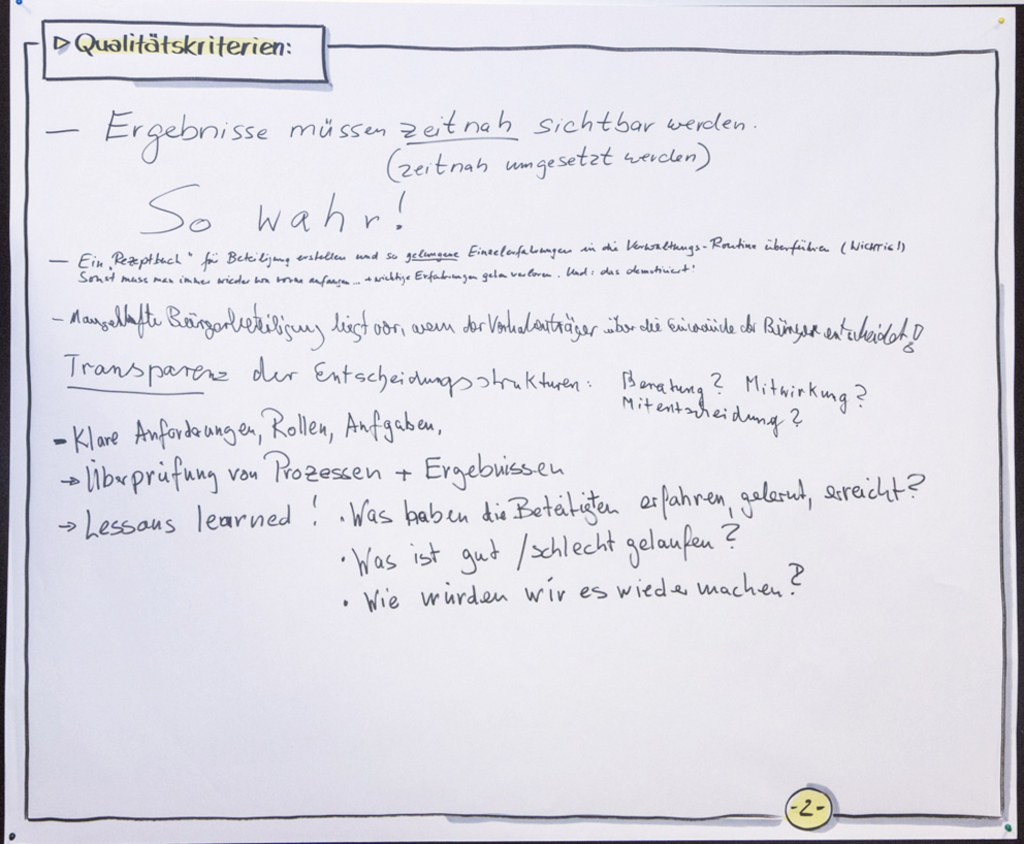 ▷ Qualitätskriterien:
— Ergebnisse müssen zeitnah sichtbar werden.
(zeitnah umgesetzt werden)
So wahr!
— Ein „Rezeptbuch“ für Beteiligung erstellen und so gelungene Einzelerfahrungen in die Verwaltungs-Routine überführen (WICHTIG!)
Sonst muss man immer wieder von vorne anfangen... → wichtige Erfahrungen gehen verloren. Und: das demotiviert!
- Mangelhafte Bürgerbeteiligung liegt vor, wenn der Vorhabenträger über die Einwände der Bürger entscheidet!
Transparenz der Entscheidungsstrukturen: Beratung? Mitwirkung?
Mitentscheidung?
- Klare Anforderungen, Rollen, Aufgaben,
→ Überprüfung von Prozessen + Ergebnissen
→ Lessons learned! • Was haben die Beteiligten erfahren, gelernt, erreicht?
• Was ist gut / schlecht gelaufen?
• Wie würden wir es wieder machen?
-2-